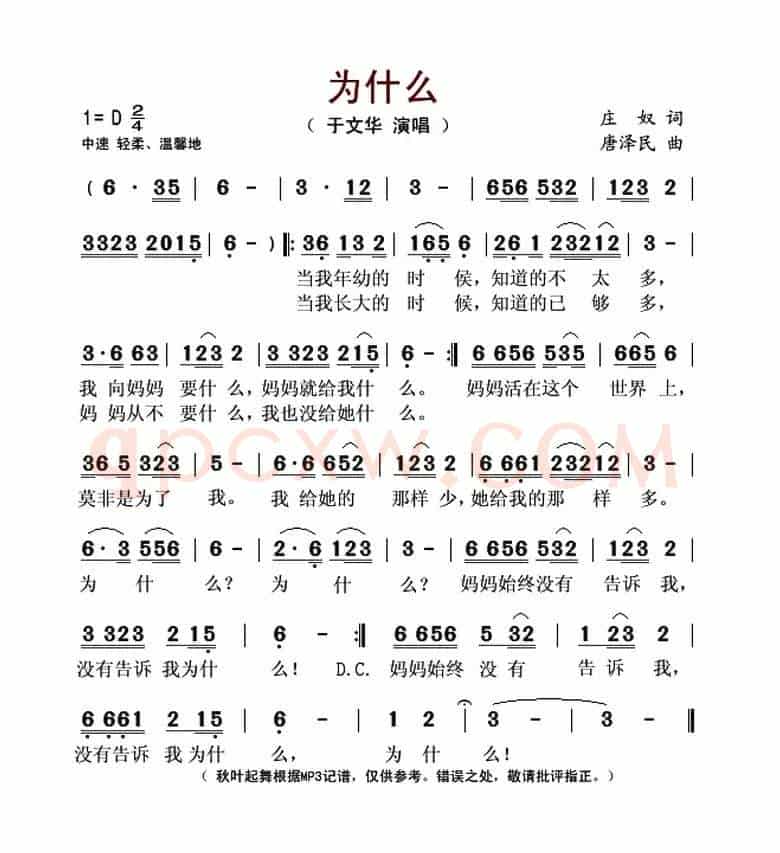 为什么
1= D 2/4
( 于文华 演唱 )
庄 奴 词
中速 轻柔、温馨地
唐泽民 曲
( 6 · 35 | 6 - | 3 · 12 | 3 - | 656 532 | 123 2 |
3323 2015 | 6 - ) ‖: 36 13 2 | 165 6 | 26 1 23212 | 3 - |
当我年幼的 时 侯，知道的不 太 多，
当我长大的 时 候，知道的已 够 多，
3·6 63 | 123 2 | 3 323 215 | 6 - :‖ 6 656 535 | 665 6 |
我 向妈妈 要什 么，妈妈就给我什 么。 妈妈活在这个 世界 上，
妈 妈从不 要什 么，我也没给她什 么。
qpcxw.COM
36 5 323 | 5 - | 6·6 652 | 123 2 | 6 661 23212 | 3 - |
莫非是为了 我。 我 给她的 那样 少，她给我的那 样 多。
6·3 556 | 6 - | 2·6 123 | 3 - | 6 656 532 | 123 2 |
为 什 么？ 为 什 么？ 妈妈始终没有 告诉 我，
3 323 2 15 | 6 - :‖ 6 656 5 32 | 1 23 2 |
没有告诉 我为什 么！ D.C. 妈妈始终 没 有 告 诉 我，
6 661 2 15 | 6 - | 1 2 | 3 - | 3 - ‖
没有告诉 我 为什 么， 为 什 么！
( 秋叶起舞根据MP3记谱，仅供参考。错误之处，敬请批评指正。)